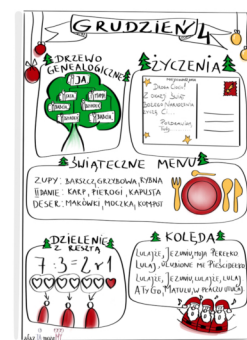 GRUDZIEŃ 4
DRZEWO
GENEALOGICZNE
JA
ŻYCZENIA
DROGA CIOCIU!
Z OKAZJI ŚWIĄT
BOŻEGO NARODZENIA
ŻYCZĘ CI...
POZDRAWIAM,
ŚWIĄTECZNE MENU
ZUPY: BARSZCZ, GRZYBOWA, RYBNA
II DANIE: KARP, PIEROGI, KAPUSTA
DESER: MAKÓWKI, MOCZKA, KOMPOT
DZIELENIE
Z RESZTĄ
7:3=2 r 1
KOLĘDA
LULAJŻE, JEZUNIU, MOJA PEREŁKO
LULAJ, ULUBIONE ME PIEŚCIDEŁKO
LULAJŻE, JEZUNIU, LULAJŻE, LULAJ
A TY GO, MATULU, W PŁACZU UTULAJ